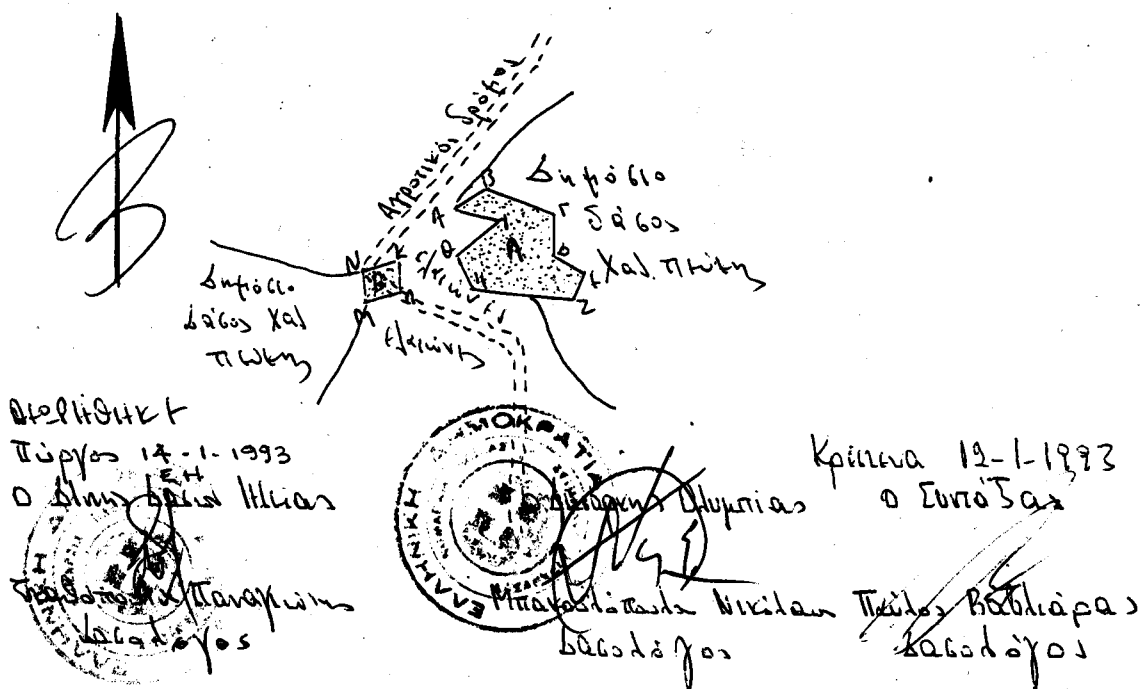 Αγροτικός δρόμος
Δημόσιο
δάσος
Χαλ. πεύκης
Α
Β
Γ
Δ
Ε
Ζ
Η
Θ
Ι
Α
Ν
Κ
Β
Μ
Λ
Δημόσιο
Δάσος Χαλ
πεύκης
Ελαιώνες
ΘΕΩΡΗΘΗΚΕ
Πύργος 14-1-1993
Ο Δ/της Δασών Ηλείας
Παναγιώτης
Δασολόγος
ΕΛΛΗΝΙΚΗ ΔΗΜΟΚΡΑΤΙΑ
Ο Δασάρχης Ολυμπίας
Νικόλαος
Δασολόγος
Κρέστενα 12-1-1993
Ο Συντάξας
Παύλος
Δασολόγος